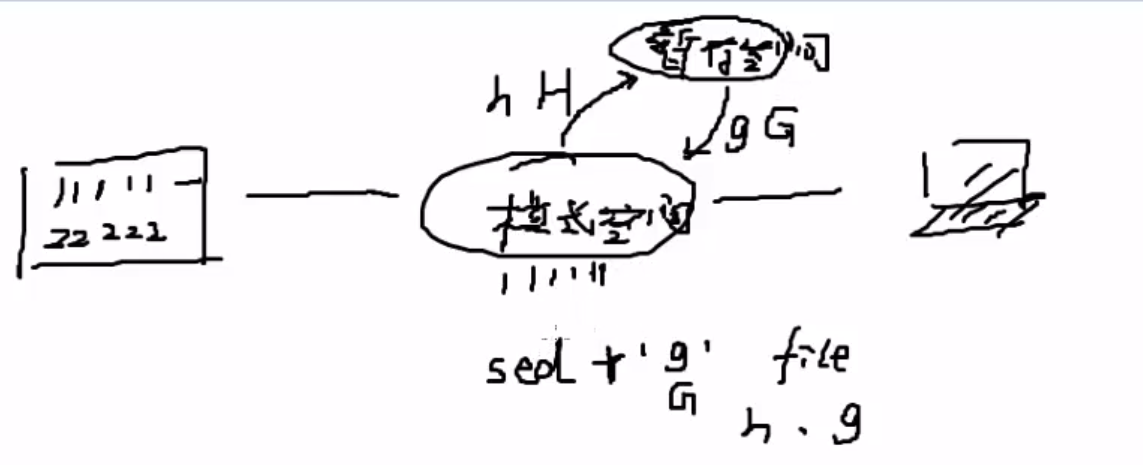 暂存空间
h H
g G
11111
22222
模式空间
111111
sed + 'g' file
G
h . g